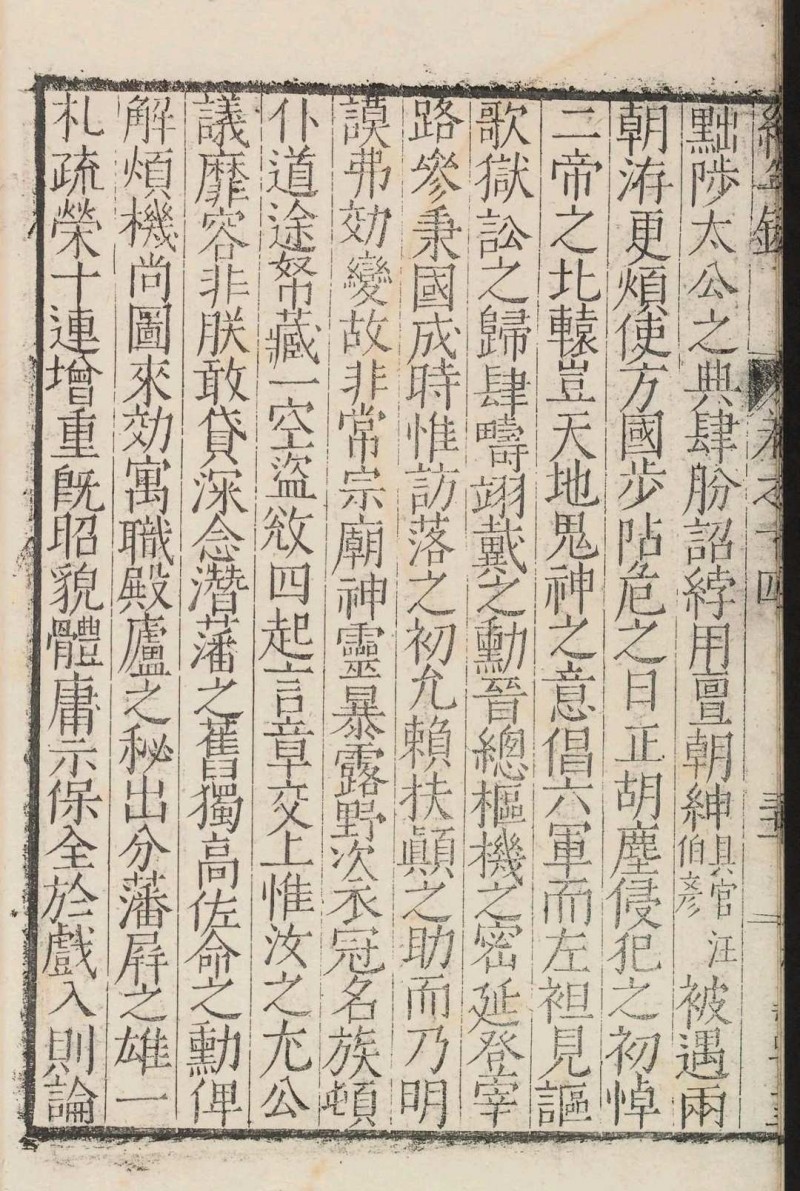 卷之十四
黜陟太公之典肆肹詔綍用亶朝紳具官汪伯彥被遇兩
朝洊更煩使方國步阽危之日正胡塵侵犯之初悼
二帝之北轅豈天地鬼神之意倡六軍而左袒見謳
歌獄訟之歸肆疇翊戴之勳晉總樞機之密延登宰
路參秉國成時惟訪落之初允賴扶顛之助而乃明
謨弗効變故非常宗廟神靈暴露野次衣冠名族頓
仆道途帑藏一空盜敓四起言章交上惟汝之尤公
議靡容非朕敢貸深念潛藩之舊獨高佐命之勳俾
解煩機尚圖來効寓職殿廬之秘出分藩屏之雄一
札疏榮十連增重旣昭貌體庸示保全於戲入則論